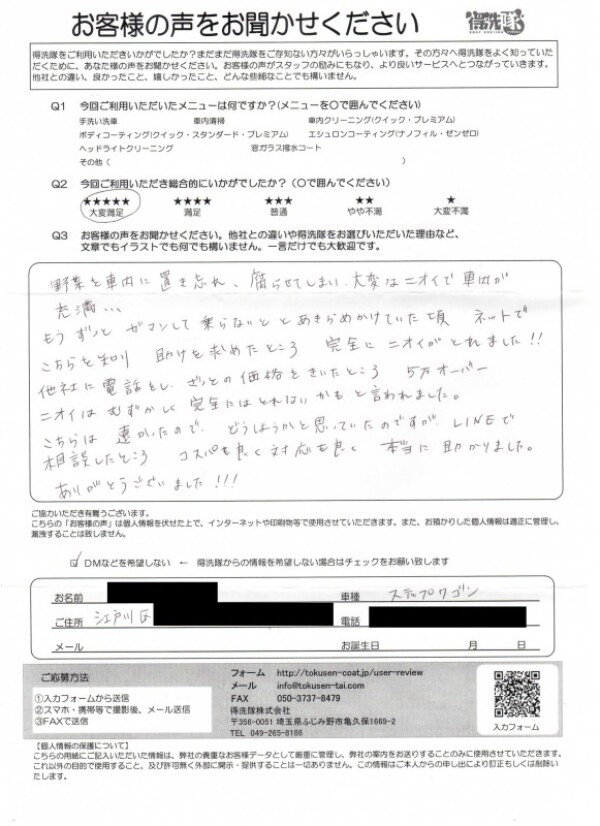 お客様の声をお聞かせください
得洗隊
得洗隊をご利用いただきいかがでしたか？まだまだ得洗隊をご存知ない方々がいらっしゃいます。その方々へ得洗隊をよく知っていた
だくために、あなた様の声をお聞かせください。お客様の声がスタッフの励みにもなり、より良いサービスへとつながっていきます。
他社との違い、良かったこと、嬉しかったこと、どんな些細なことでも構いません。
Q1 今回ご利用いただいたメニューは何ですか？(メニューを〇で囲んでください)
手洗い洗車 車内清掃 車内クリーニング(クイック・プレミアム)
ボディコーティング(クイック・スタンダード・プレミアム) エシュロンコーティング(ナノフィル・ゼンゼロ)
ヘッドライトクリーニング 窓ガラス撥水コート
その他( )
Q2 今回ご利用いただき総合的にいかがでしたか？(〇で囲んでください)
★★★★★ ★★★★ ★★★ ★★ ★
大変満足 満足 普通 やや不満 大変不満
Q3 お客様の声をお聞かせください。他社との違いや得洗隊をお選びいただいた理由など、
文章でもイラストでも何でも構いません。一言だけでも大歓迎です。
野菜を車内に置き忘れ、腐らせてしまい、大変なニオイで車内が
充満...
もうずっとガマンして乗らないと とあきらめかけていた頃 ネットで
こちらを知り 助けを求めたところ 完全にニオイがとれました!!
他社に電話をし、ざっとの価格をきいたところ 5万オーバー
ニオイはむずかしく完全にはとれないかもと言われました。
こちらは 遠かったので、どうしようかと思っていたのですが、LINEで
相談したところ コスパも良く対応も良く 本当に助かりました。
ありがとうございました!!!
ご協力いただき有難うございます。
こちらの「お客様の声」は個人情報を伏せた上で、インターネットや印刷物等で使用させていただきます。また、お預かりした個人情報は適正に管理し、
漏洩することは致しません。
DMなどを希望しない ← 得洗隊からの情報を希望しない場合はチェックをお願い致します
お名前 車種 ステップワゴン
ご住所 江戸川区 電話
メール お誕生日 月 日
ご応募方法
①入力フォームから送信
②スマホ・携帯等で撮影後、メール送信
③FAXで送信
フォーム http://tokusen-coat.jp/user-review
メール info@tokusen-tai.com
FAX 050-3737-8479
得洗隊株式会社
〒356-0051 埼玉県ふじみ野市亀久保1669-2
TEL 049-265-8186
入力フォーム
【個人情報の保護について】
こちらの用紙にご記入いただいた情報は、弊社の貴重なお客様データとして厳重に管理し、弊社の案内をお送りすることのみに使用させていただきます。
これ以外の目的で使用すること、及び許可無く外部に開示・提供することは一切ありません。この情報はご本人からの申し出により訂正もしくは削除い
たします。